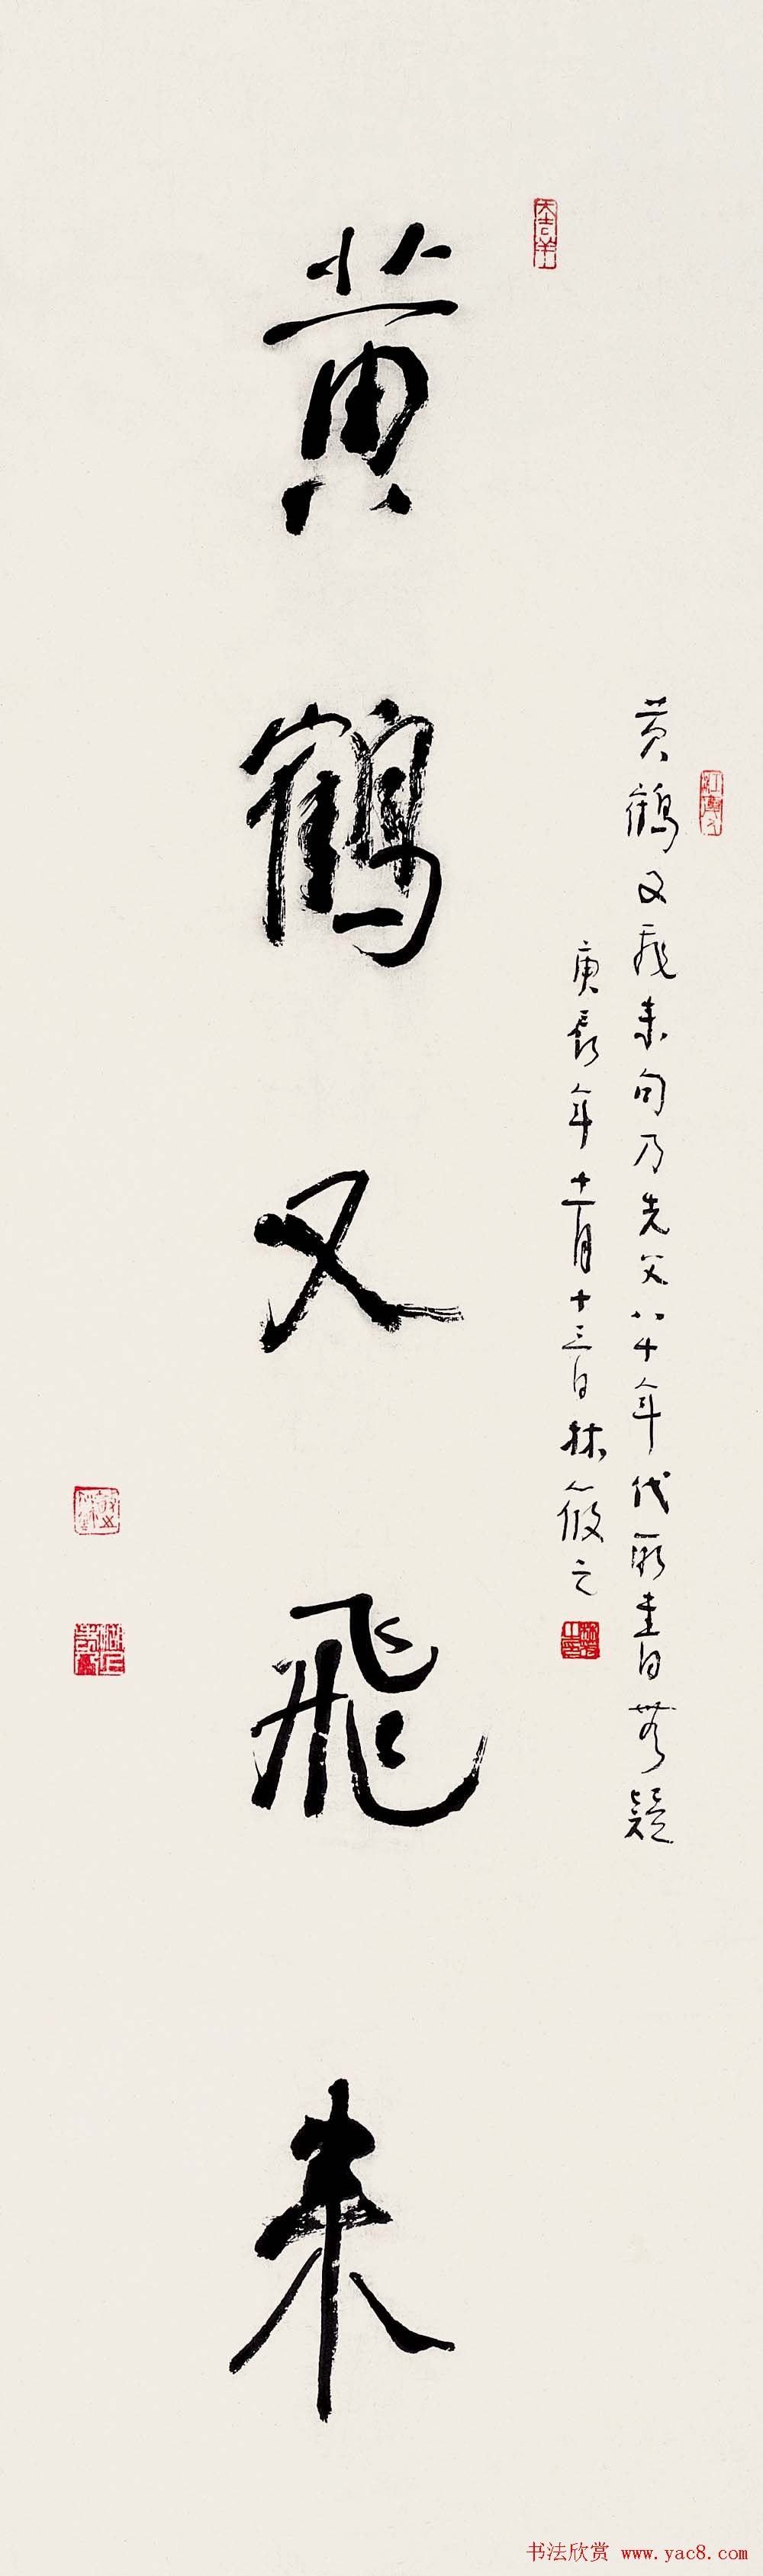 黄鹤又飛来
黄鹤又飛来句乃先父八十年代所書自無疑
庚辰年十一月十三日林筱之
书法欣赏 www.yac8.com